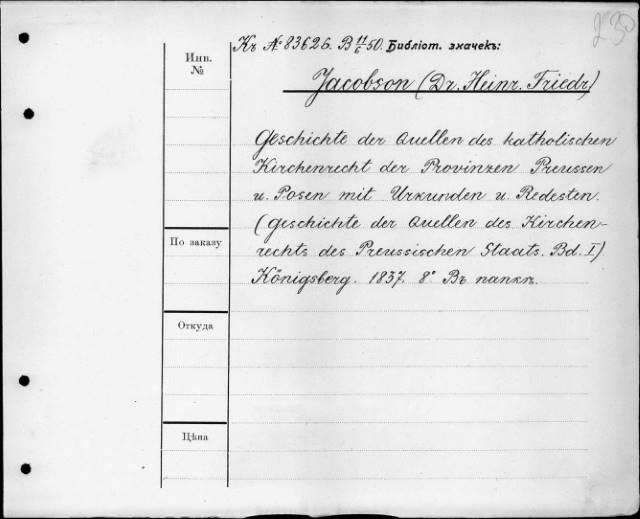 230
Къ № 83626. B 11/6 50. Библіот. значекъ:
Инв. №
Jacobson (Dr. Heinr. Friedr.)
Geschichte der Quellen des katholischen
Kirchenrecht der Provinzen Preussen
u. Posen mit Urkunden u. Redesten.
(Geschichte der Quellen des Kirchen-
rechts des Preussischen Staats. Bd. I)
По заказу
Königsberg. 1837. 8° Въ папкѣ.
Откуда
Цѣна